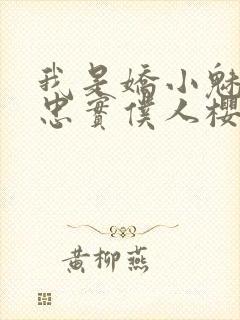 我是嬌小魅
忠實僕人櫻
黃柳燕